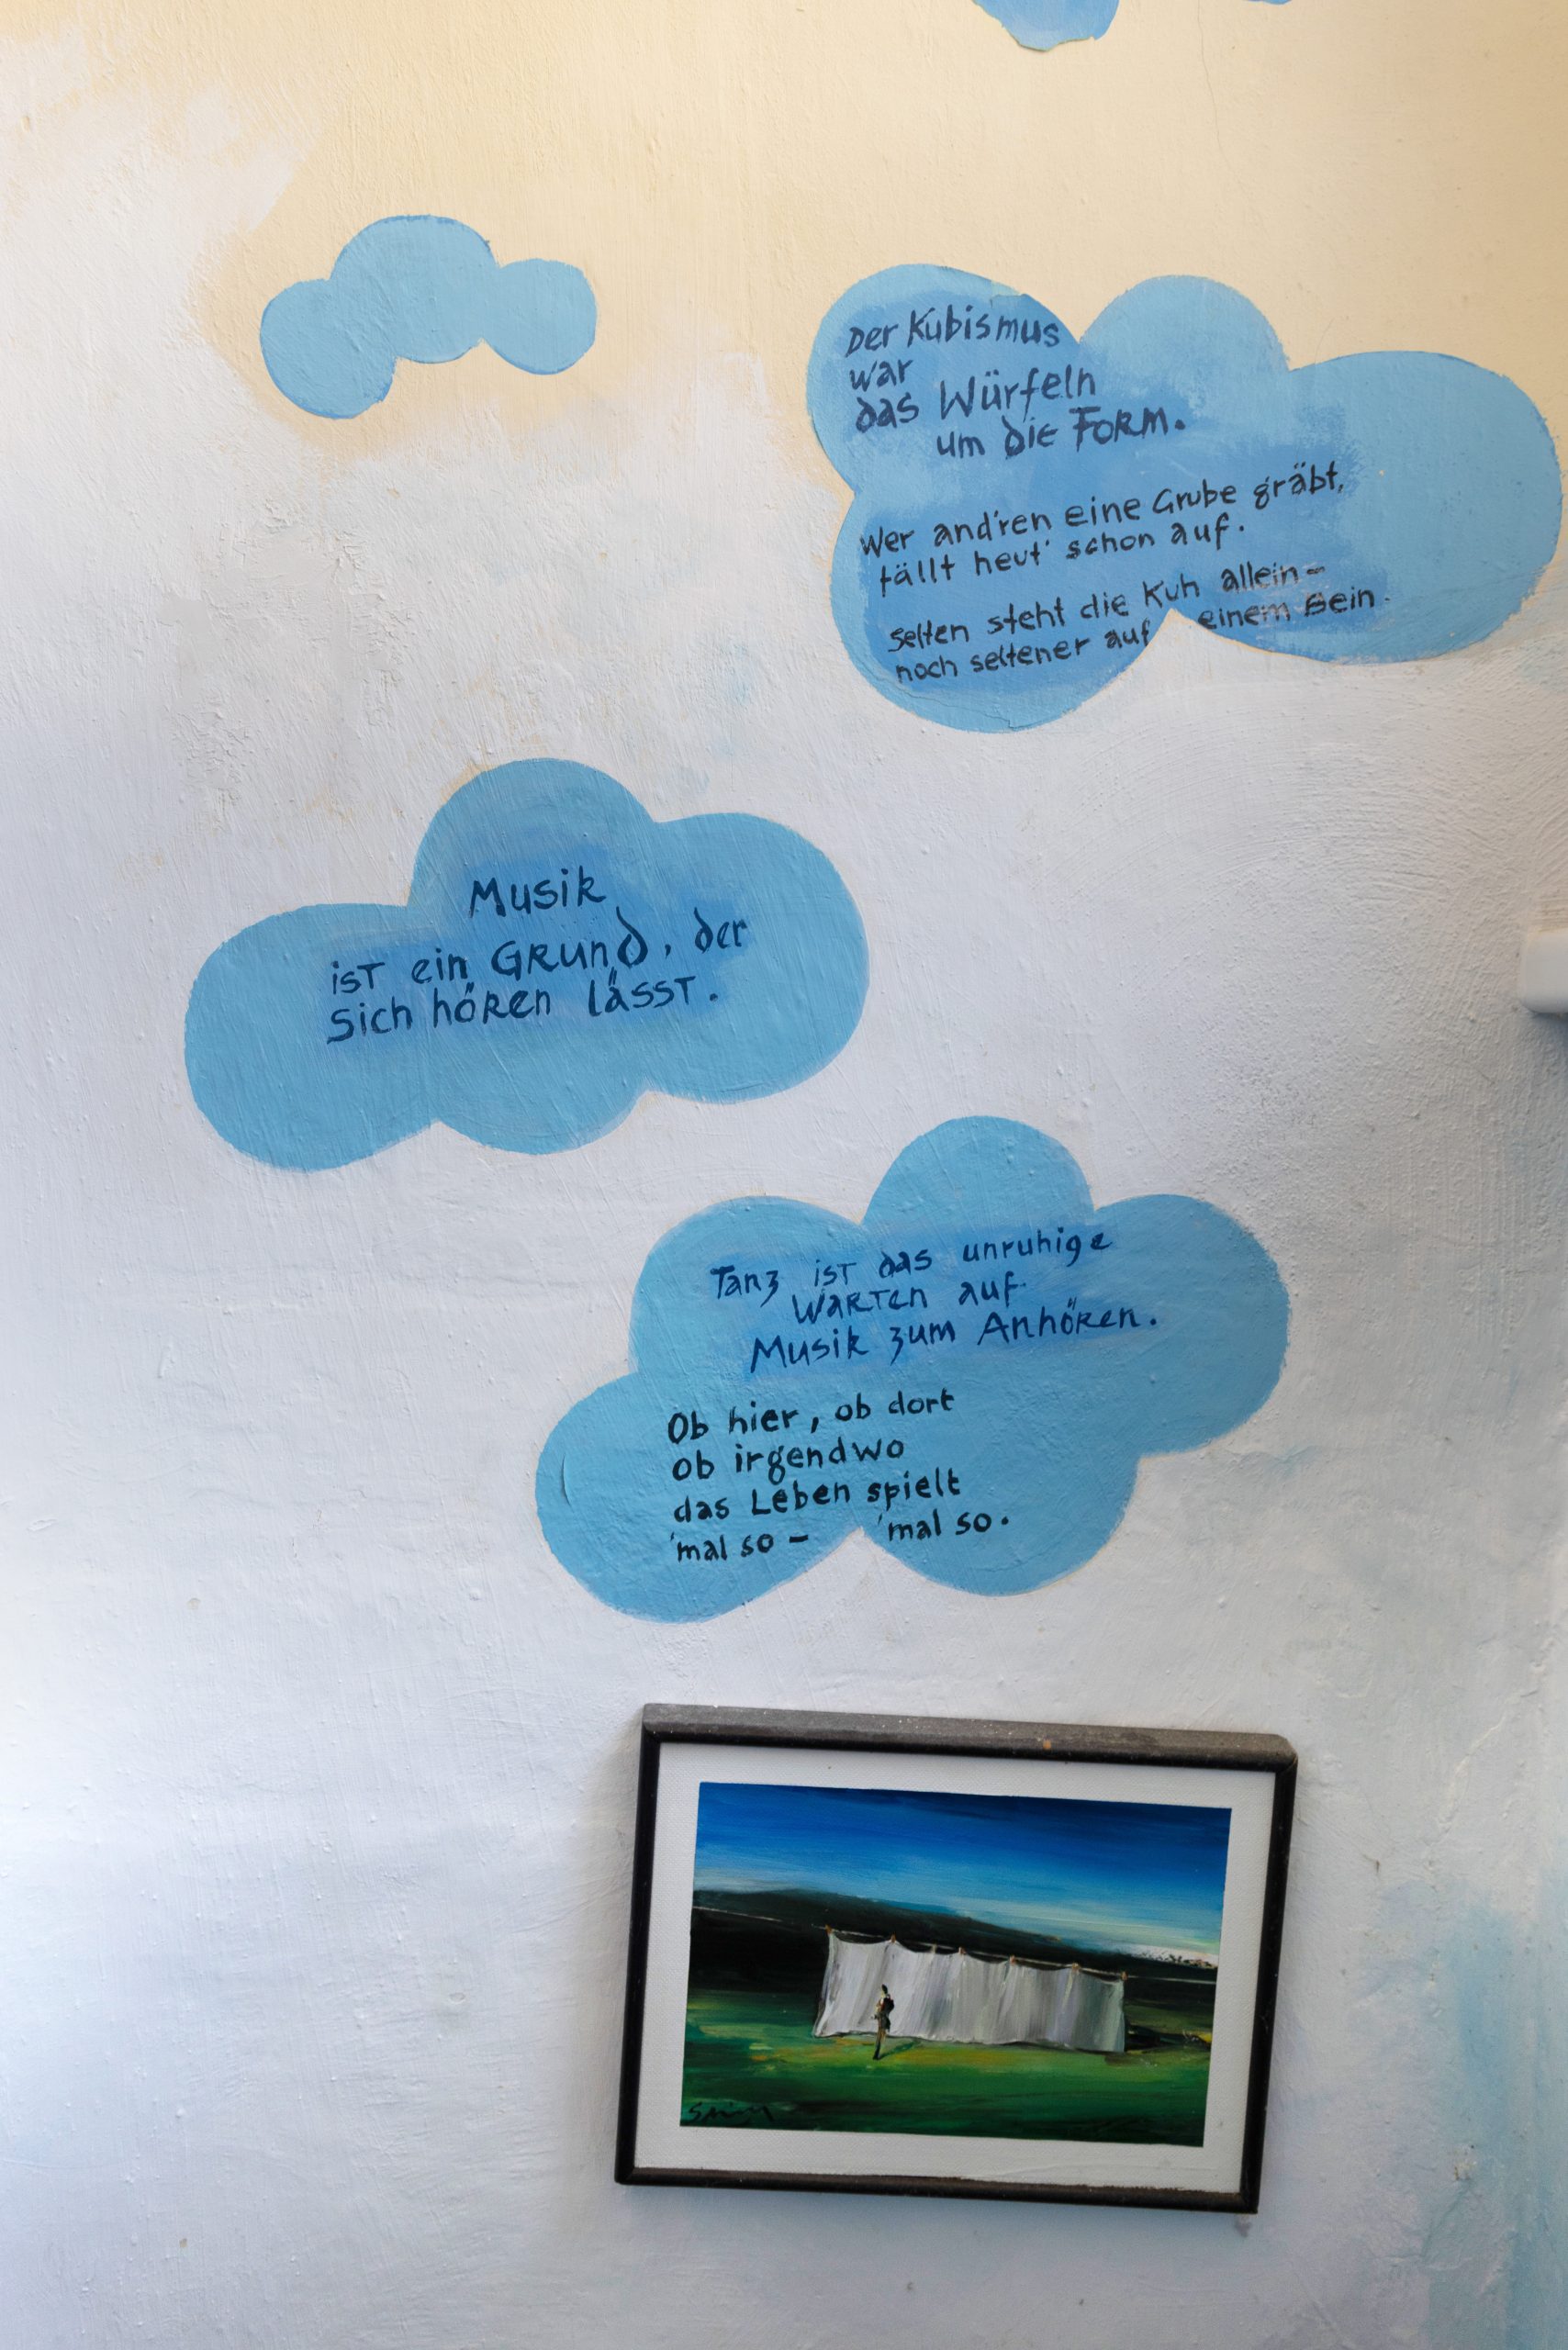 Der Kubismus
war
das Würfeln
um die Form.
Wer and'ren eine Grube gräbt,
fällt heut' schon auf.
selten steht die Kuh allein –
noch seltener auf einem Bein.
Musik
ist ein Grund, der
sich hören lässt.
Tanz ist das unruhige
Warten auf
Musik zum Anhören.
Ob hier, ob dort
ob irgendwo
das Leben spielt
'mal so – 'mal so.